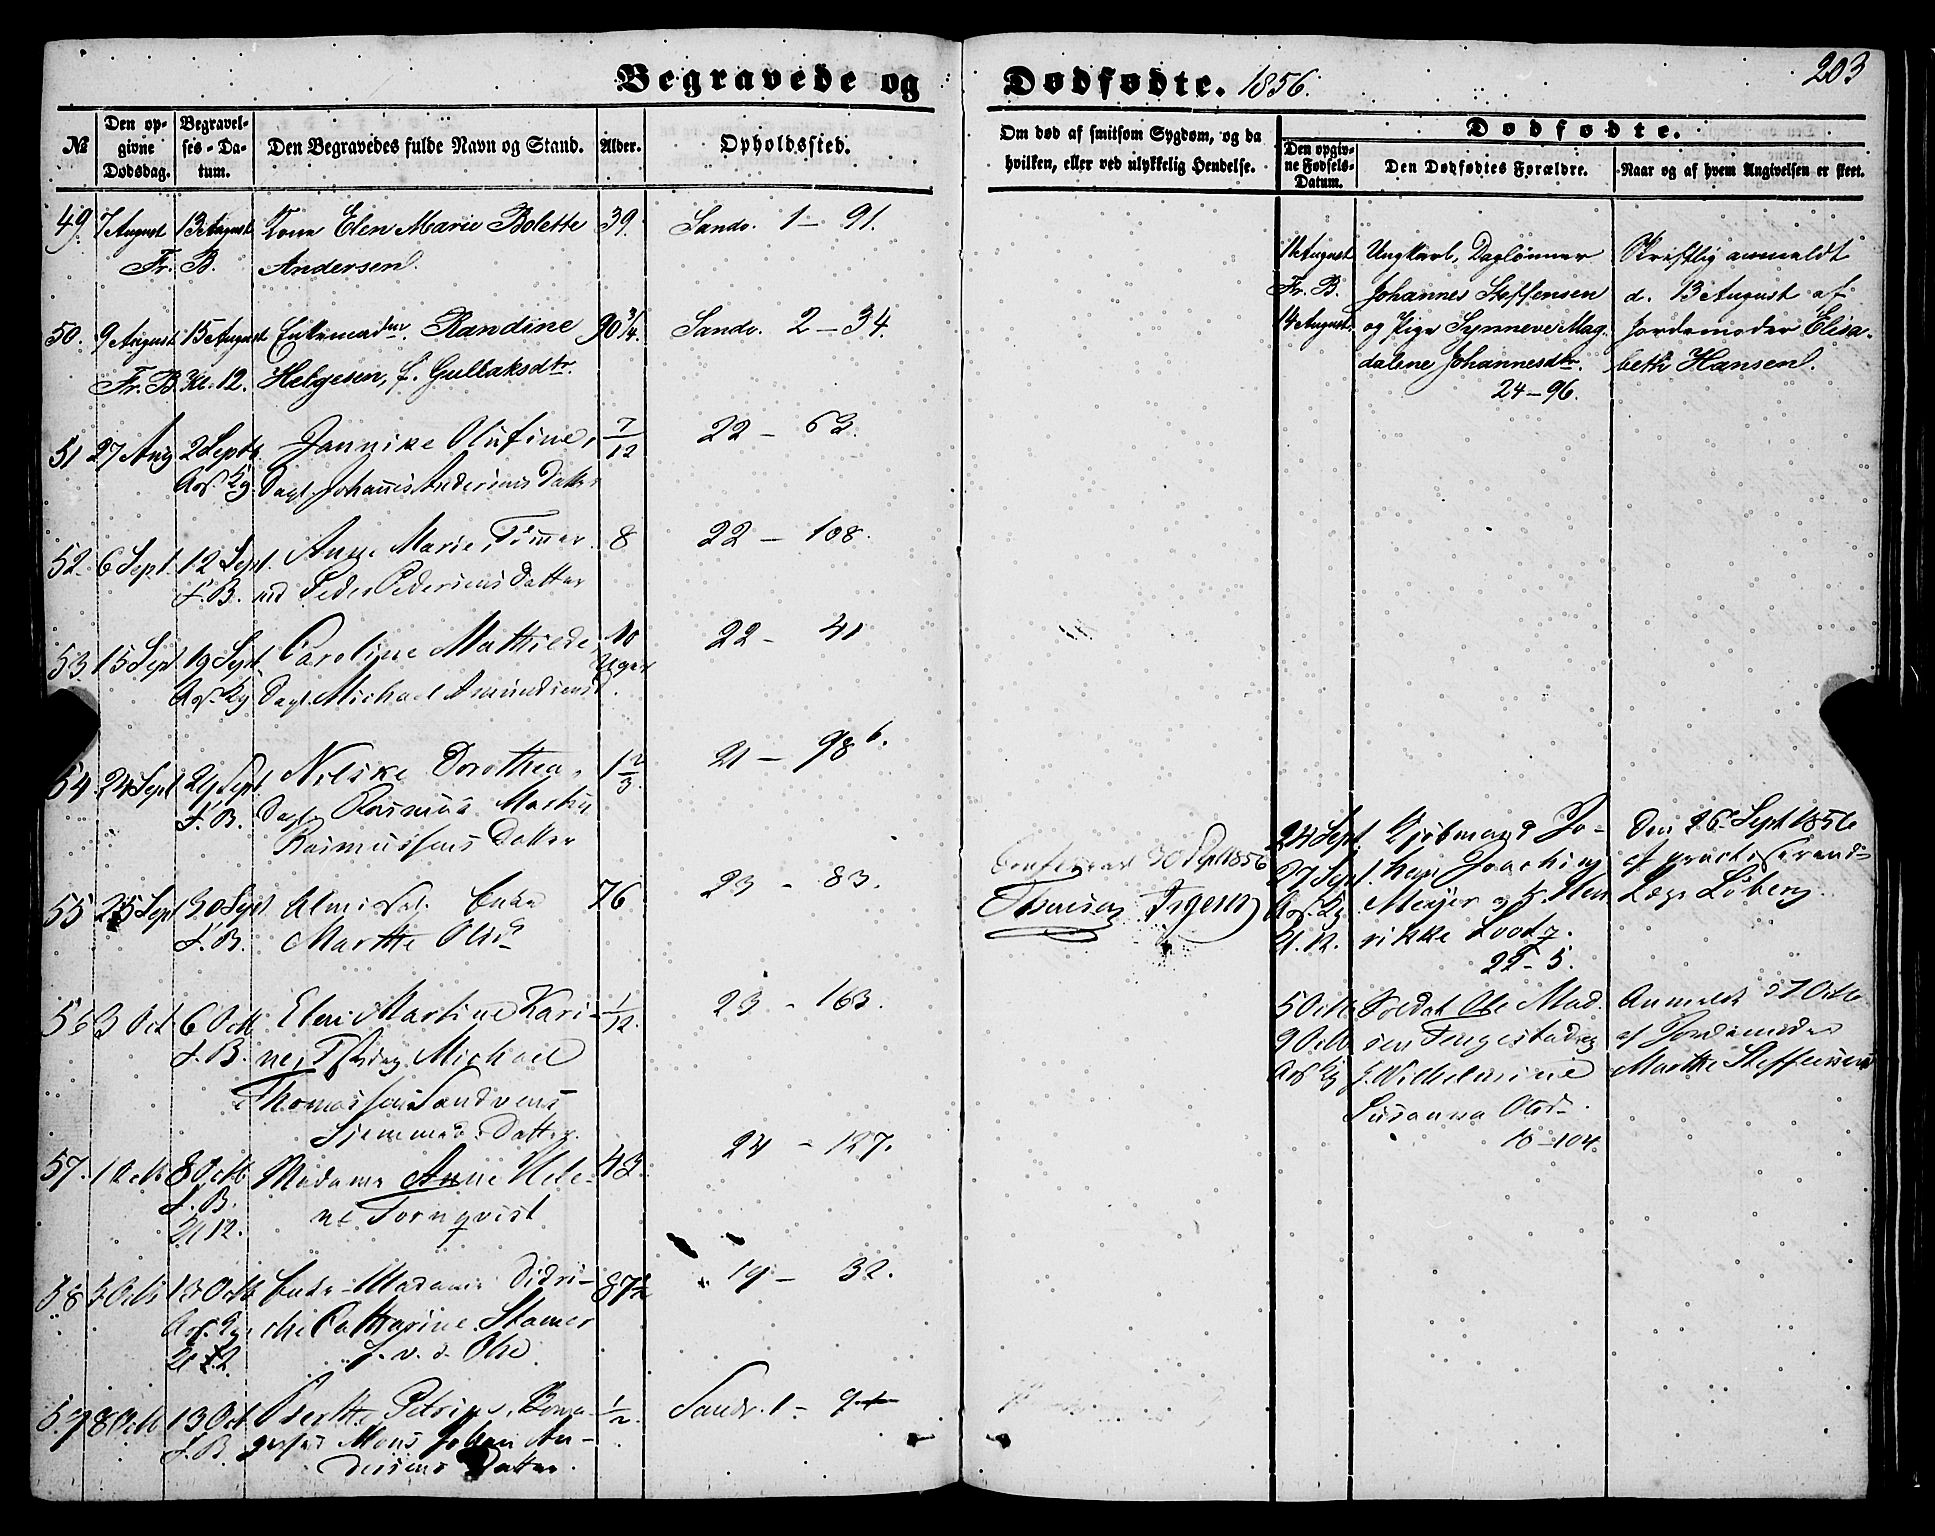 203
Begravede og Dødfødte. 1856.
№
Den opgivne Dødsdag.
Begravelses-Datum.
Den Begravedes fulde Navn og Stand.
Alder.
Opholdssted.
Om død af smitsom Sygdom, og da hvilken, eller ved ulykkelig Hendelse.
Dødfødte.
Den opgivne Fødsels-Datum.
Den Dødfødtes Forældre.
Naar og af hvem Angivelsen er skeet.
49. 7 August 13 August Kone Elen Marie Bolette 39. Sandv. 1 – 91.
Fr. B. Andersen.
50. 9 August 15 August Enkemadm. Randine 90 3/4. Sandv. 2 – 34.
Fr. B. Kl. 12. Helgesen, f. Gullaksdtr.
51 27 Aug 2 Septb. Jannike Olufine, 7/12 22 – 63.
Ass. Kg. Dagl. Johannes Andersens Datter
52. 6 Sept. 12 Sept. Anne Marie, Tømer 8 22 – 108.
F. B. md Peder Pedersens Datter
53. 15 Sept. 19 Sept. Caroline Mathilde, 10 22 – 41
Uger
Ass. Kg Dagl. Michael Amundsens D.
54 24 Sept 29 Sept. Nilske Dorothea, 1 2/3 21 – 98 b.
F. B. Dagl. Rasmus Martin
Rasmussens Datter
55 25 Sept 30 Sept Enke 76 23 – 83.
F. B. Marthe Olsd
56 3 Oct 6 Octb. Elen Martine Kari- 1/12. 23 – 163.
F. B. ne, Michael
Thomassen Sandvens
Datter.
57. 1 Octb 8 Octb Madame Anne Hele- 43. 24 – 127.
F. B. ne Tornqvist
Kl 12.
58 5 Octb 13 Octb Enke-Madame Didri- 87 1/2 19 – 32.
Ass. Kg che Catharine Stamer
Kl 12. f. v. d. Ohe
59 8 Octb 13 Oct. Berthe Petrine, Bor- 1/2. Sandv. 1 – 94
F. B. gerskab Mons Johan An-
dersens Datter.
11 August Ungkarl, Daglønner Skriftlig anmeldt
Fr. B. Johannes Steffensen d. 13 August af
14 August. og Pige Synneve Mag- Jordemoder Elisa-
dalene Johannesdtr. beth Hansen.
24 – 96.
Confereret 30 Sept 1856
24 Sept. Kjøbmand Jo- Den 26 Sept 1856
27 Sept. han Joachim af practiserende
Ass. Kg Meyer og H. Hen- Læge Løberg.
Kl. 12. rikke Lootz.
22 – 5.
5 Octb. Soldat Ole Mad- Anmeldt d 7 Octb
9 Octb sen Tengestadseg af Jordemoder
Ass Kg f. Wilhelmine Marthe Steffensen
Susanna Olsd.
10 – 104.